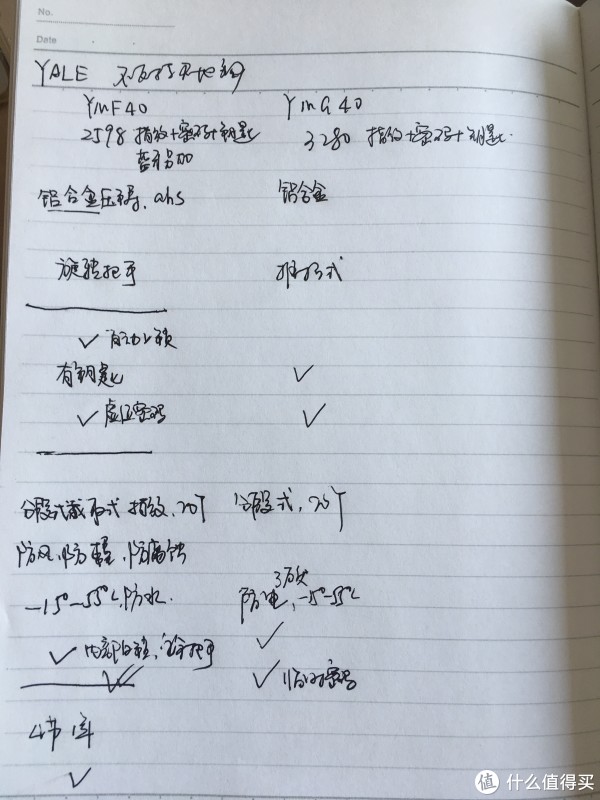 No.
Date
YALE 不支持天地钩
YMF40 YMG40
2598 指纹+密码+钥匙 3280 指纹+密码+钥匙
铝合金压铸, abs 铝合金
旋转把手 推拉式
✓ 自动上锁
有钥匙 ✓
✓ 虚位密码 ✓
分段式截取式 指纹, 20个 分段式, 20个
防风, 防尘, 防腐蚀
3万伏
-15°-55°C, 防水. 防电, -15°-55°C
✓ 内部反锁, 把手 ✓
✓ ✓ 临时密码
4节
✓
值 什么值得买